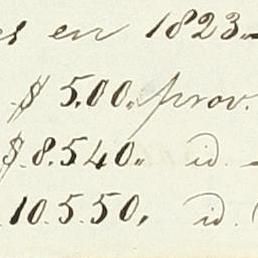 es en 1823.
$ 5.00. prov.
$. 8.540. id.
10.5.50. id.